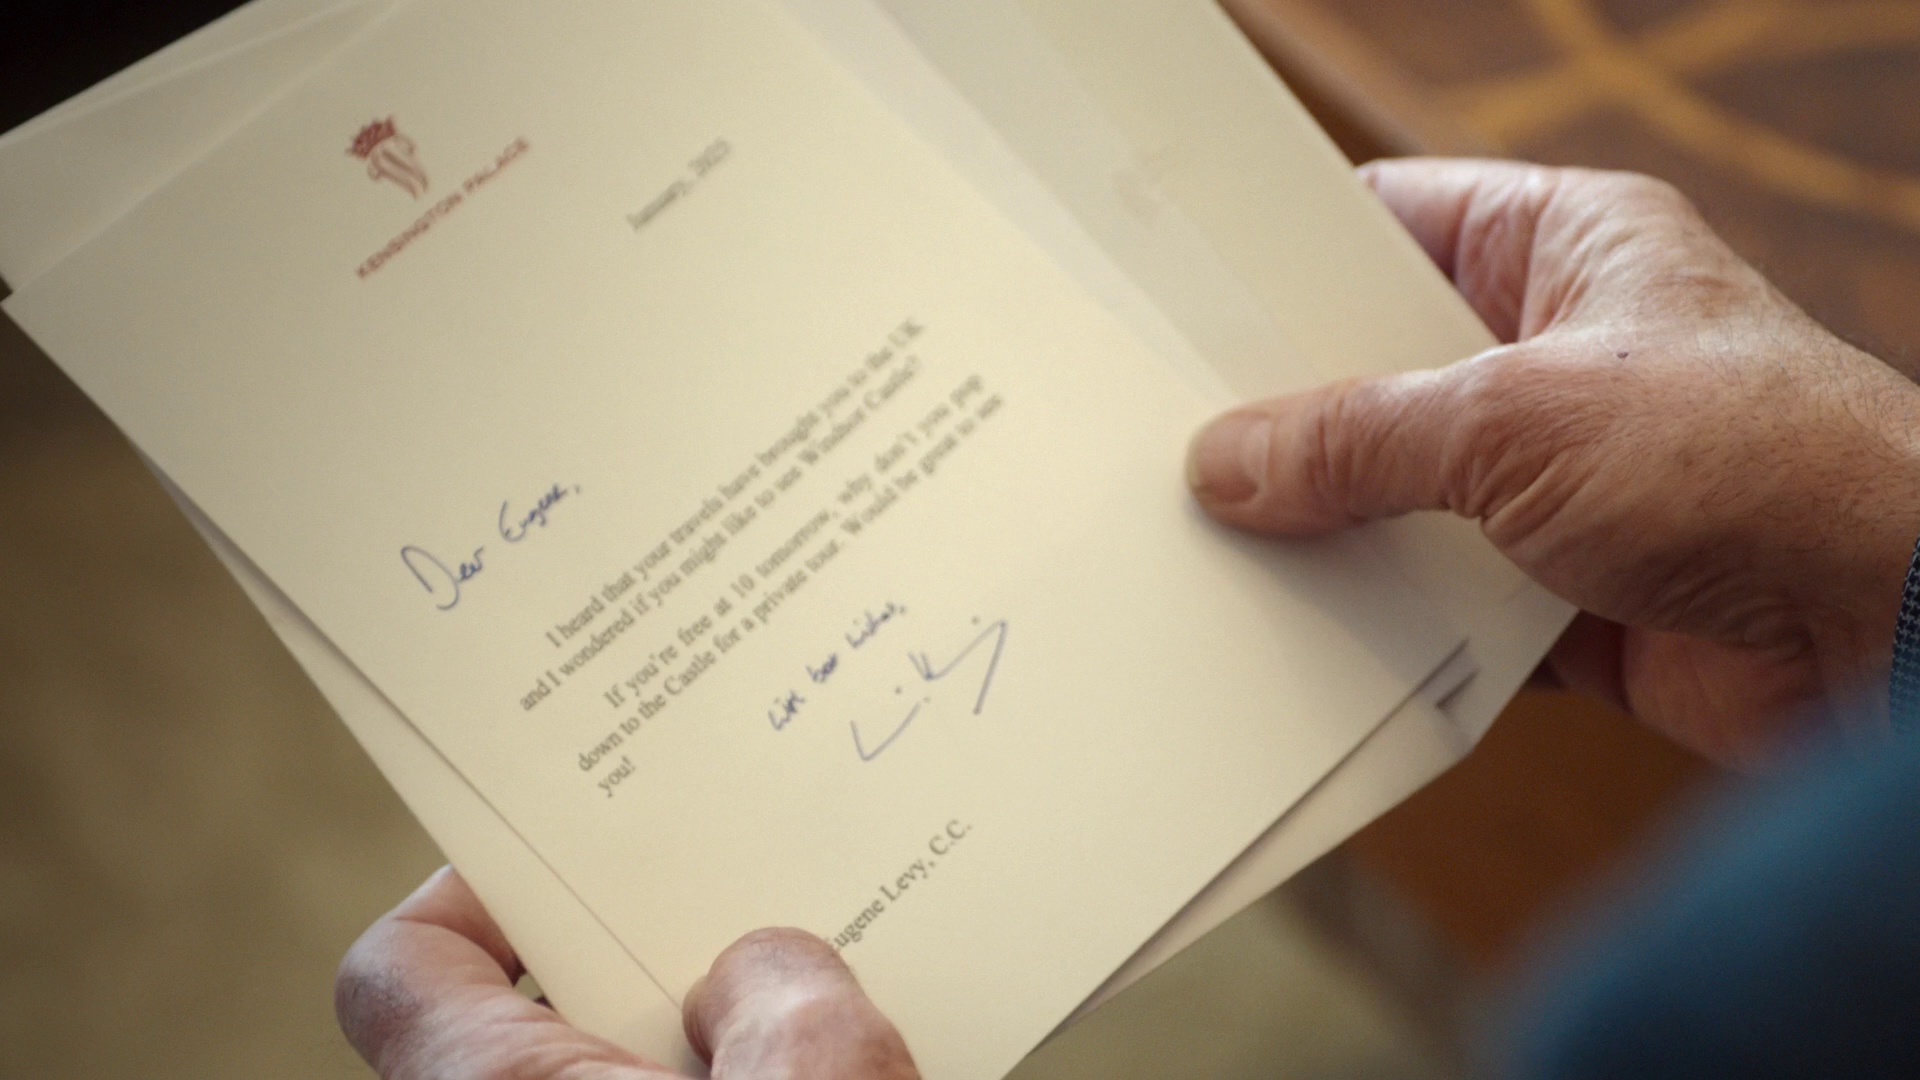 KENSINGTON PALACE
January, 2025
Dear Eugene,
I heard that your travels have brought you to the UK
and I wondered if you might like to see Windsor Castle?
If you're free at 10 tomorrow, why don't you pop
down to the Castle for a private tour. Would be great to see
you!
With best wishes,
Eugene Levy, C.C.